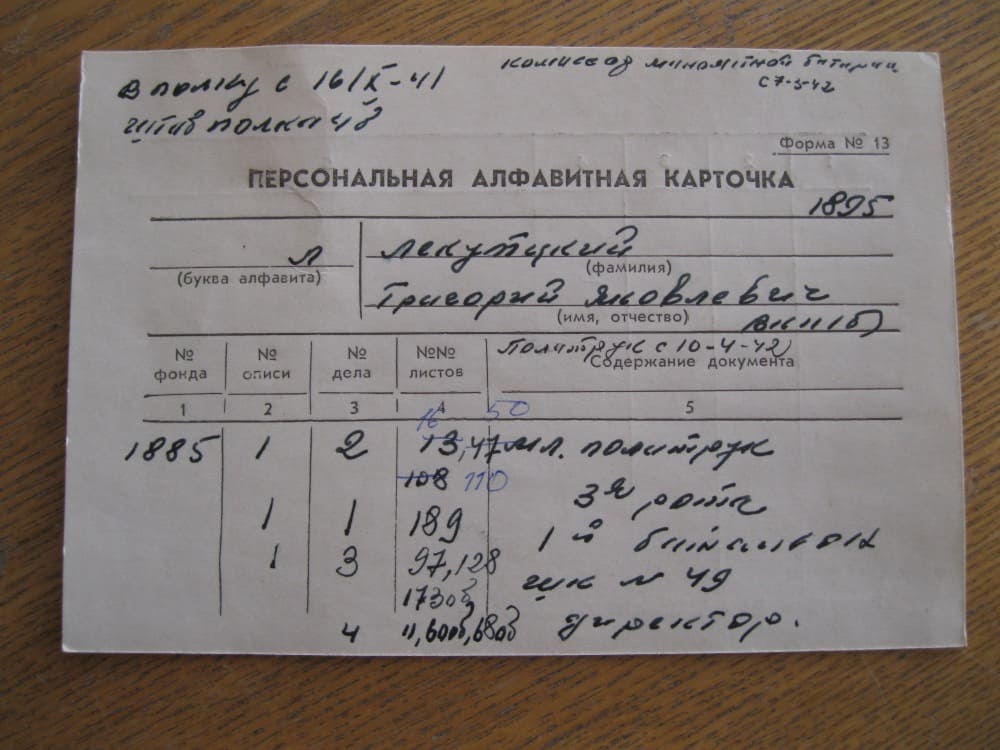 В полку с 16/X-41
комиссар миномётной батареи
с 7-3-42
штаб полка
Форма № 13
ПЕРСОНАЛЬНАЯ АЛФАВИТНАЯ КАРТОЧКА
1895
л
(буква алфавита)
Лекутцкий
(фамилия)
Григорий Яковлевич
(имя, отчество)
ВКП(б)
Политрук с 10-4-42
№ фонда
№ описи
№ дела
№№ листов
Содержание документа
1 2 3 4 5
16 50
1885 1 2 13,47 мл. политрук
108 110
3я рота
1 1 189
1й батальон
1 3 97,128
шк № 49
173об
4 11,60об,68об директор.